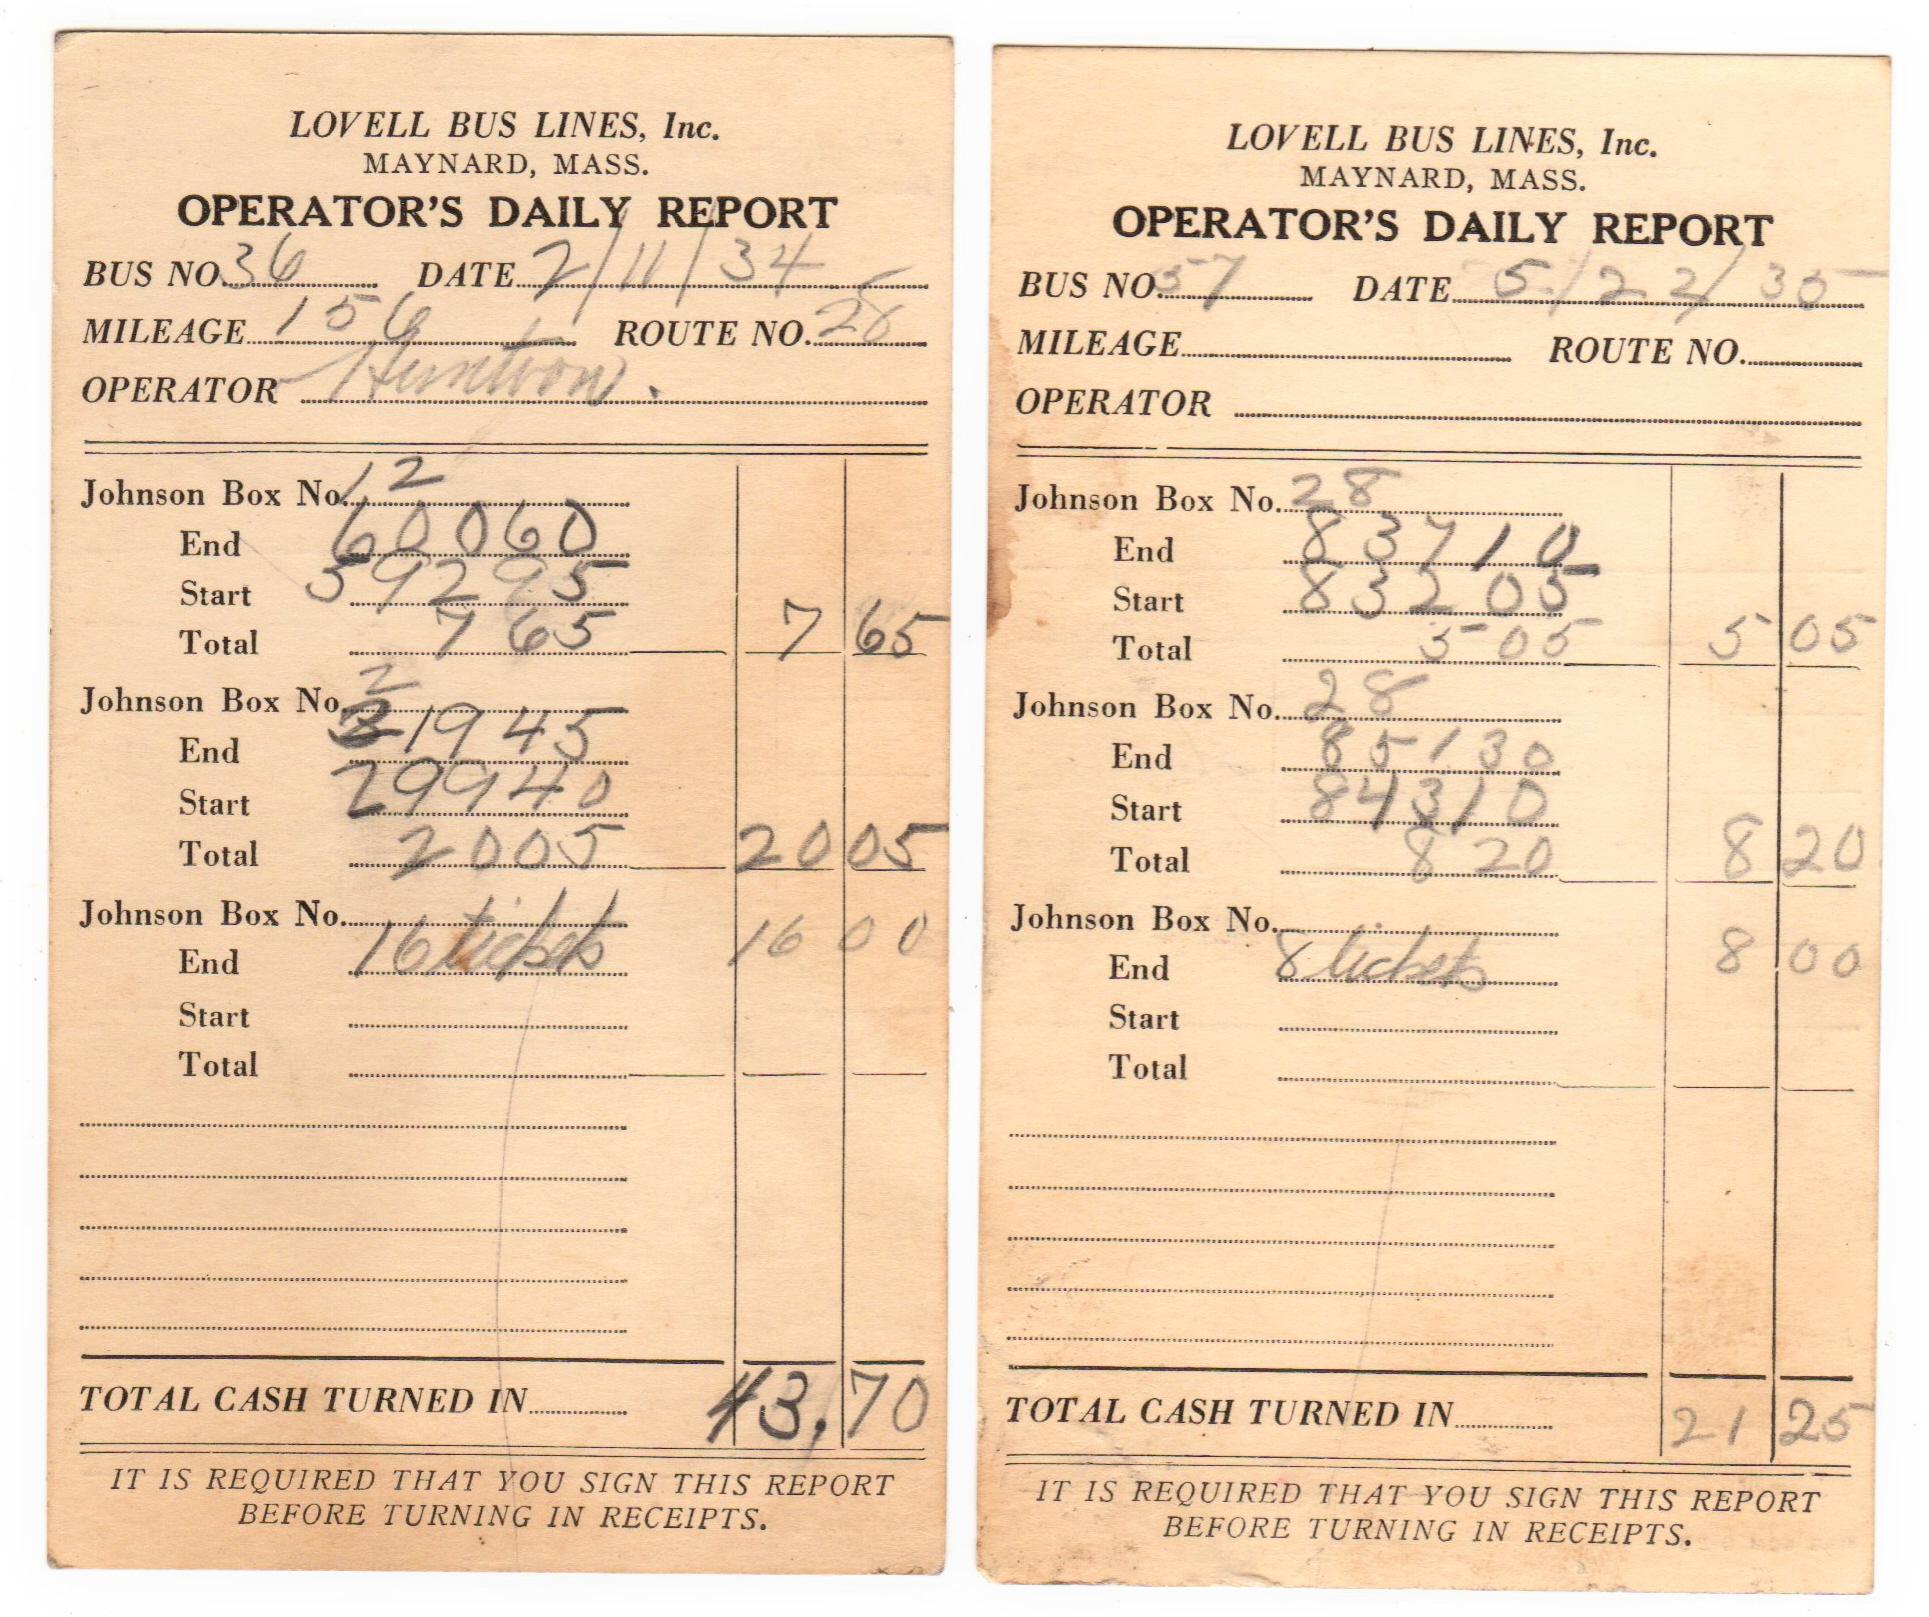 LOVELL BUS LINES, Inc.
MAYNARD, MASS.
OPERATOR'S DAILY REPORT
BUS NO. 36 DATE 2/11/34
MILEAGE 156 ROUTE NO. 28
OPERATOR
Johnson Box No. 12
End 60060
Start 59295
Total 765 7 65
Johnson Box No. 2
End 31945
Start 29940
Total 2005 20 05
Johnson Box No.
End 16 tickets 16 00
Start
Total
TOTAL CASH TURNED IN 43.70
IT IS REQUIRED THAT YOU SIGN THIS REPORT
BEFORE TURNING IN RECEIPTS.
LOVELL BUS LINES, Inc.
MAYNARD, MASS.
OPERATOR'S DAILY REPORT
BUS NO. 57 DATE 5/22/35
MILEAGE ROUTE NO.
OPERATOR
Johnson Box No. 28
End 83710
Start 83205
Total 505 5 05
Johnson Box No. 28
End 85130
Start 84310
Total 820 8 20
Johnson Box No.
End 8 tickets 8 00
Start
Total
TOTAL CASH TURNED IN 21 25
IT IS REQUIRED THAT YOU SIGN THIS REPORT
BEFORE TURNING IN RECEIPTS.